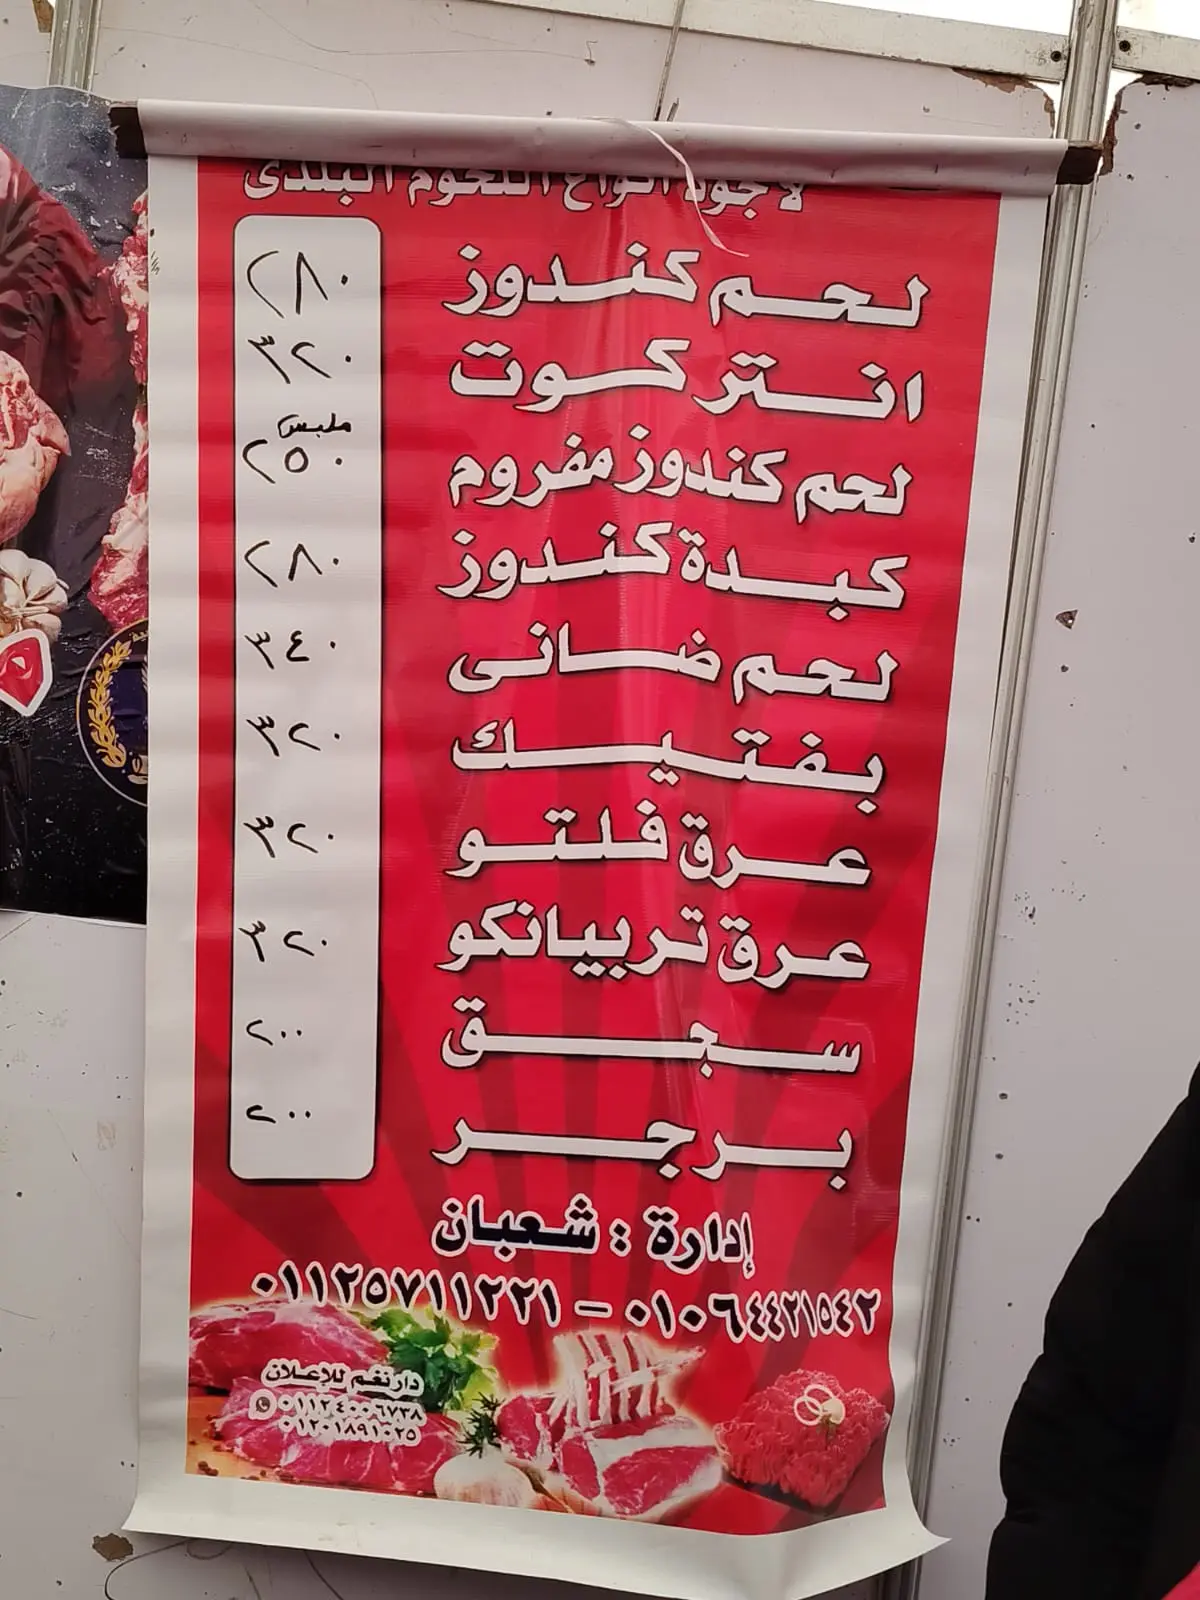 لأجود أنواع اللحوم البلدى
لحم كندوز ٢٨٠
انتركوت ٣٢٠
ملبس
لحم كندوز مفروم ٢٥٠
كبدة كندوز ٢٨٠
لحم ضانى ٣٤٠
بفتيك ٣٢٠
عرق فلتو ٣٢٠
عرق تربيانكو ٣٢٠
سجق ٢٠٠
برجر ٢٠٠
إدارة : شعبان
٠١١٢٥٧١١٢٢١ - ٠١٠٦٤٤٢١٥٤٢
دار نغم للإعلان
٠١١٢٤٠٠٦٧٣٨
٠١٢٠١٨٩١٠٢٥